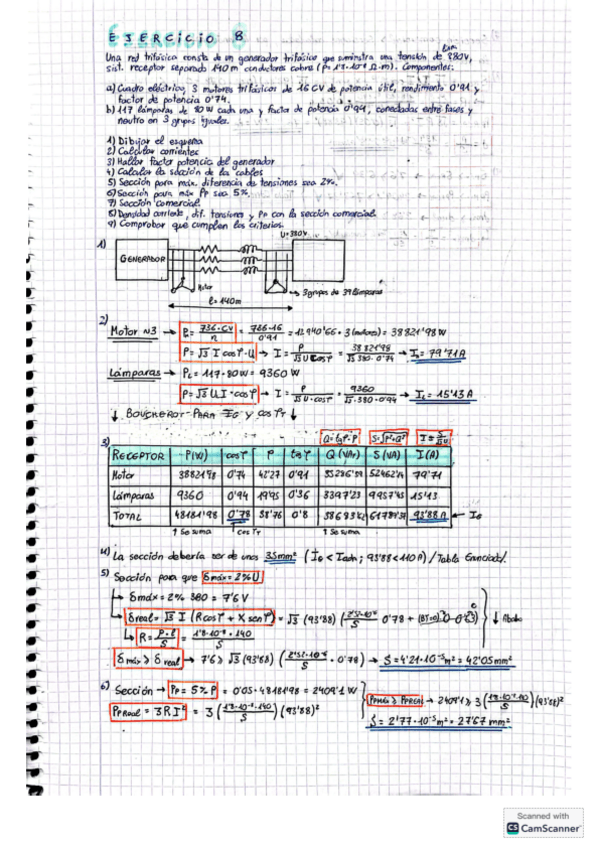 EJERCICIO 8
Una red trifásica consta de un generador trifásico que suministra una tensión de 380V,
sist. receptor separado 140m conductores cobre (ρ= 1'8·10⁻⁸ Ω·m). Componentes:
a) Cuadro eléctrico, 3 motores trifásicos de 16 CV de potencia útil, rendimiento 0'91 y
factor de potencia 0'74.
b) 117 lámparas de 80W cada una y factor de potencia 0'94, conectadas entre fases y
neutro en 3 grupos iguales.
1) Dibujar el esquema
2) Calcular corrientes
3) Hallar factor potencia del generador
4) Calcular la sección de la cables
5) Sección para máx. diferencia de tensiones sea 2%.
6) Sección para máx Pp sea 5%.
7) Sección comercial.
8) Densidad corriente, dif. tensiones y Pp con la sección comercial.
9) Comprobar que cumplen los criterios.
1)
U=380V
GENERADOR
Motor
3 grupos de 39 lámparas
l= 140m
2)
Motor N3 → P= 736·CV/η = 736·16/0'91 = 12940'66 · 3 (motores) = 38821'98 W
P= √3 I cosφ·U → I= P/√3 U cosφ = 38821'98/√3·380·0'74 → = 79'71A
Lámparas → PL = 117·80W = 9360 W
P= √3 U I·cosφ → I= P/√3·U·cosφ = 9360/√3·380·0'94 → IL= 15'13 A
↓ BOUCHEROT PARA IG y cosφT ↓
Q= tgφ·P S=√P²+Q² I= S/√3U
3)
RECEPTOR P(W) cosφ φ tgφ Q (VAr) S (VA) I(A)
Motor 38821'98 0'74 42'27 0'91 52462'14 79'71
Lámparas 9360 0'94 19'95 0'36 3397'23 9957'45 15'13
TOTAL 48181'98 0'78 38'76 0'8 61789'37 93'88 A ← IG
↑ Se suma ↑ cosφT ↑ Se suma
4) La sección debería ser de unos 35mm² (IG < Iadm; 93'88<110 A) / Tabla Enunciado/.
5) Sección para que δmáx=2%U
δmáx = 2% 380 = 7'6 V
δreal= √3 I (Rcosφ + X senφ) = √3 (93'88)
↓ Abajo
R= ρ·l/S = 1'8·10⁻⁸·140/S
δmáx ≥ δreal → 7'6 ≥ √3 (93'88) (2'52·10⁻⁶/S · 0'78) → S= 4'21·10⁻⁵m² = 42'05mm²
6) Sección → Pp = 5% P = 0'05·48181'98 = 2409'1 W
Pp Real = 3RI² = 3 (1'8·10⁻⁸·140/S) (93'88)²
Ppmáx ≥ PpREAL → 2409'1 ≥ 3 (1'8·10⁻⁸·140/S) (93'88)²
S= 2'77·10⁻⁵m² = 27'67 mm²
Scanned with
CS CamScanner